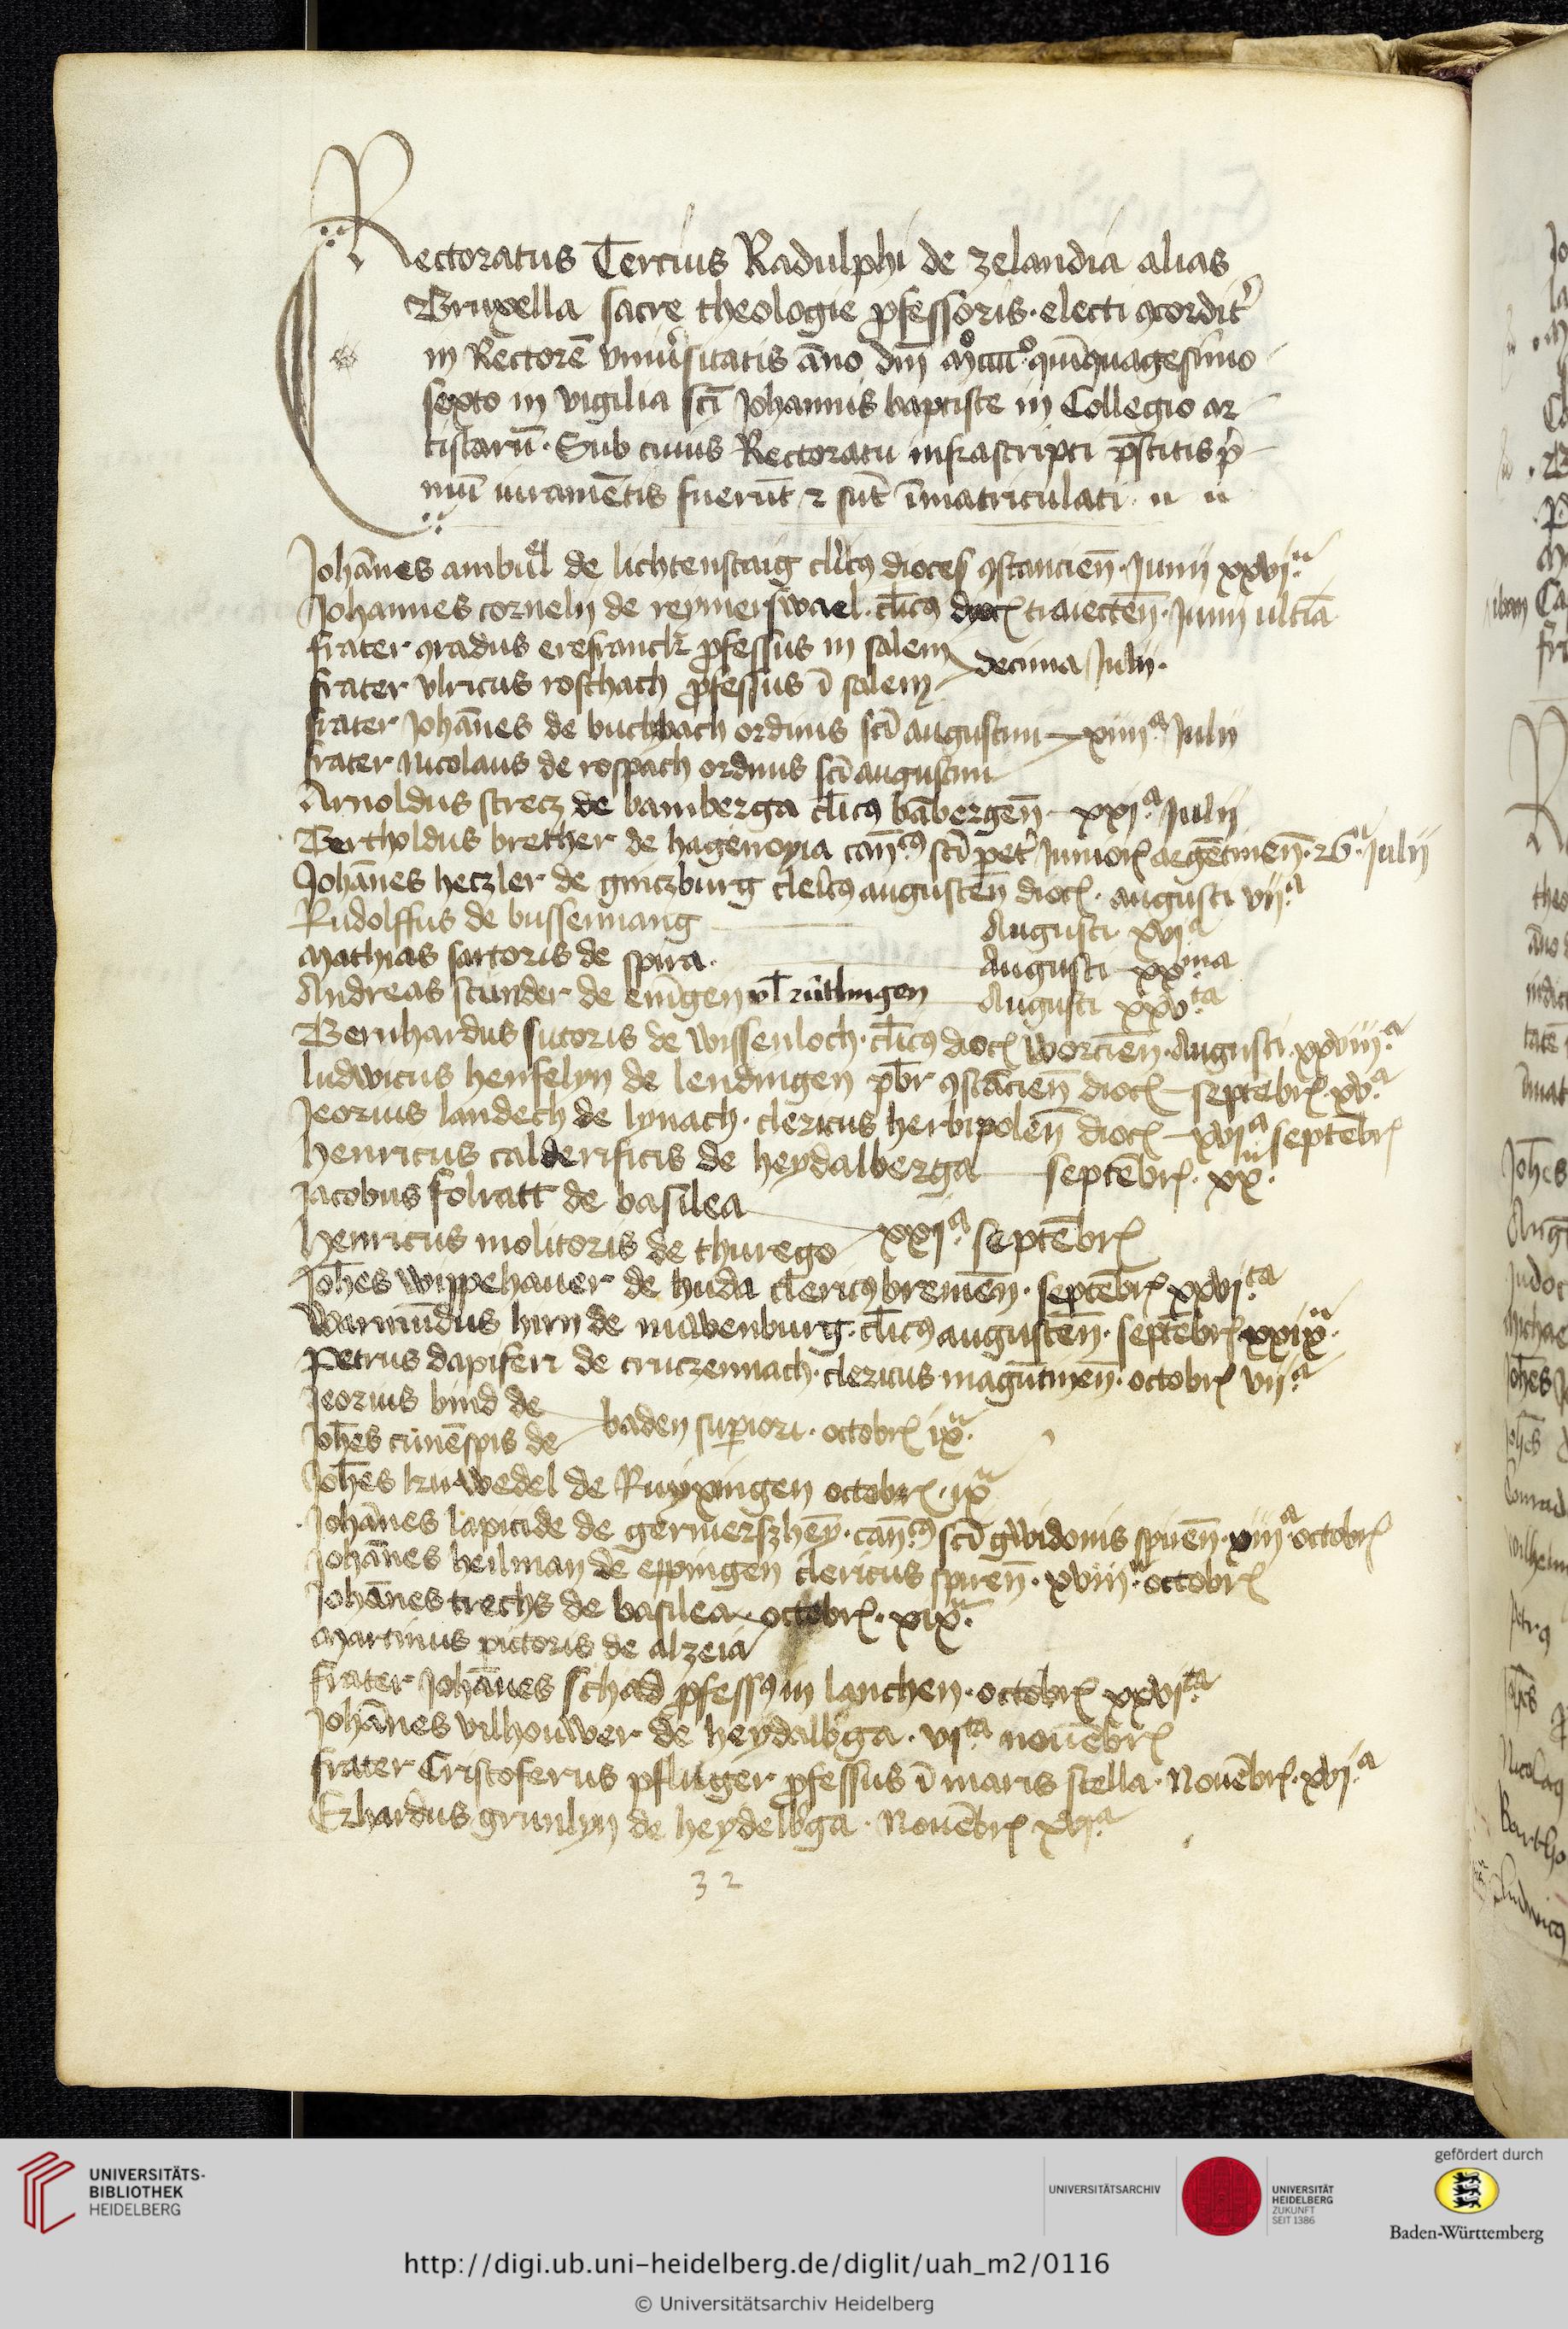 Rectoratus Tercius Radulphi de zelandia alias
Bruxella sacre theologie ꝓfessoris · electi ꝯcordit̾
in Rectorē vniu̾sitatis āno dnī Mº cccc º quīnquagesimo
sexto in vigilia scī Johannis baptiste in Collegio ar
tistarū · Sub cuius Rectoratu infrascripti p̄stitis p̾
mū iuramētis fuerūt ⁊ sūt īmatriculati
Johānes ambu̍el de lichtenstaig cl̾icꝰ dioces ꝯstancien̄ · Junii xxvjª
Johannes cornelij de reymerswael · cl̄icꝰ dyoc̄ traiecten̄ · Junij ultīa
frater ꝯradus erefranck ꝓfessus in salem
decima Julij ·
frater vlricus roschach ꝓfessus ī salem
frater Johānes de buchbach ordinis scī augustini xiiijª Julij
frater Nicolaus de rospach ordinis scī augustini
Arnoldus strecz de bamberga cl̄icꝰ bābergen̄ xxjª Julij
Bertholdus brether de hagenoyia can̄cꝰ scī pet̾ Junior̄ argētinen̄ · 26ª Julij
Johānes heczler de ginczburg clel̾icꝰ augusten̄ dioc̄ · augusti vijª
Rudolffus de bussennang Augusti xvjª
Mathias sartoris de spira · Augusti xxma
Andreas stunder de enīgen vl̄ rutlingen Augusti xxvta
Bernhardus sutoris de wissenloch · cl̄icꝰ dioc̄ worcien̄ · Augusti xxviijª
ludwicus henselyn de lendingen pb̄r ꝯstācien̄ dioc̄ septēbr̄ · xvª
Jeorius landech de lynach · clericus herbipolen̄ dioc̄ xvjª septēbr̄
Henricus calderificis de heydalberga septēbr̄ · xxª
Jacobus folratt de basilea
xxjª septēbr̄
Henricus molitoris de thurego
Joh̄es wippehauer de huda clericꝰ bremēn · septēbr̄ xxvjta
Warmūdus hirn de mawenburg · cl̄icꝰ augustēn · septēbr̄ xxixª
Petrus dapiferi de cruczennach · clericus magūtinen̄ · octobr̄ vijª
Jeorius bind de
baden suꝑiori · octobr̄ ixª
Joh̄es cunēspis de
Joh̄es kruwedel de Ruyxingen octobr̄ · ixª
Johānes lapicide de germerszhēy · can̄cꝰ scī gwidonis spiren̄ · xiiijª octobr̄
Johānes heilman de eppingen clericus spiren̄ · xviijª octobr̄
Johānes trechs de basilea octobr̄ · xixª
Martinus pictoris de alzeia
frater Johānes schad ꝓfessꝰ in lanchen · octobr̄ xxvjta
Johānes vilhouwer de heydalb̾ga · vjta nouēbr̄
frater Cristoferus pfluger ꝓfessus ī maris stella · Nouēbr̄ · xvjª
Erhardus grunlyn de heydelb̾ga · Nouēbr̄ xvjª
32
UNIVERSITÄTS-
BIBLIOTHEK
HEIDELBERG
UNIVERSITÄTSARCHIV
UNIVERSITÄT
HEIDELBERG
ZUKUNFT
SEIT 1386
gefördert durch
Baden-Württemberg
http://digi.ub.uni-heidelberg.de/diglit/uah_m2/0116
© Universitätsarchiv Heidelberg